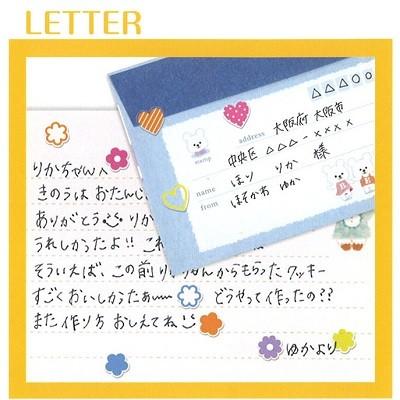 LETTER
△△△〇〇
大阪府 大阪市
address
中央区 △△△-××××
stamp
name ほり りか 様
from ほそかわ ゆか
りかちゃんへ
きのうは おたんじ
ありがとう りか
うれしかったよ!! これ
そういえば、この前 りかちゃんからもらったクッキー
すごくおいしかったぁ〜〜 どうやって作ったの??
また作り方 おしえてね
ゆかより